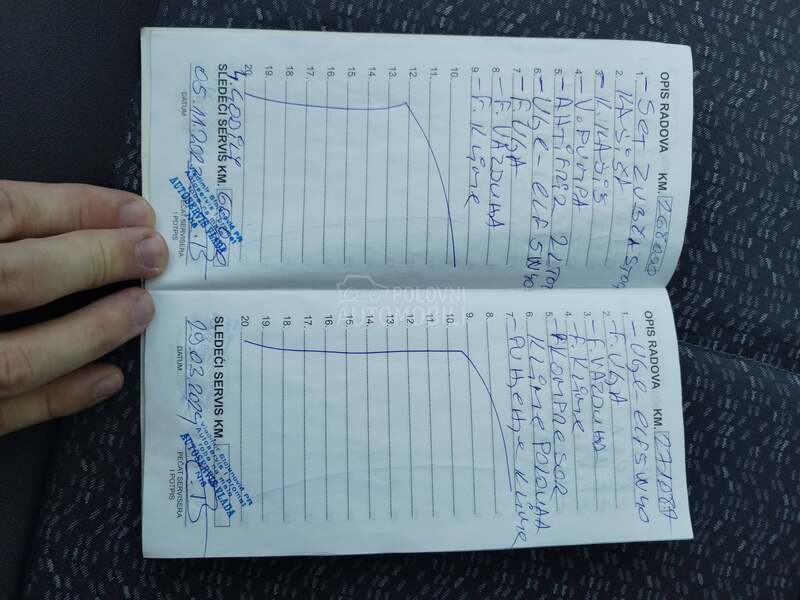 OPIS RADOVA KM. 268000
1. - SET ZUPČASTOG
2. KAIŠA
3. - K. KAIŠ
4. - V. PUMPA
5. - ANTIFRIZ 2 LTOR
6. - Uљe - ELF 5W40
7. - F. UљA
8. - F. VAZDUHA
9. - F. KLiME
10.
11.
12.
13.
14.
15.
16.
17.
18.
19.
20.
SLEDEĆI SERVIS KM.
DATUM
PEČAT SERVISERA
I POTPIS
AUTOSERVIS VLADA
OPIS RADOVA KM. 271087
1. - Uљe - ELF 5W40
2. F. UљA
3. - F. VAZDUHA
4. F. KLiME
5. - KOMPRESOR
6. KLiME POLOVAN
7. - PUњEњE KLiME
8.
9.
10.
11.
12.
13.
14.
15.
16.
17.
18.
19.
20.
SLEDEĆI SERVIS KM.
29.03.2024
DATUM
PEČAT SERVISERA
I POTPIS
AUTOSERVIS VLADA
POLOVNI
AUTOMOBILI